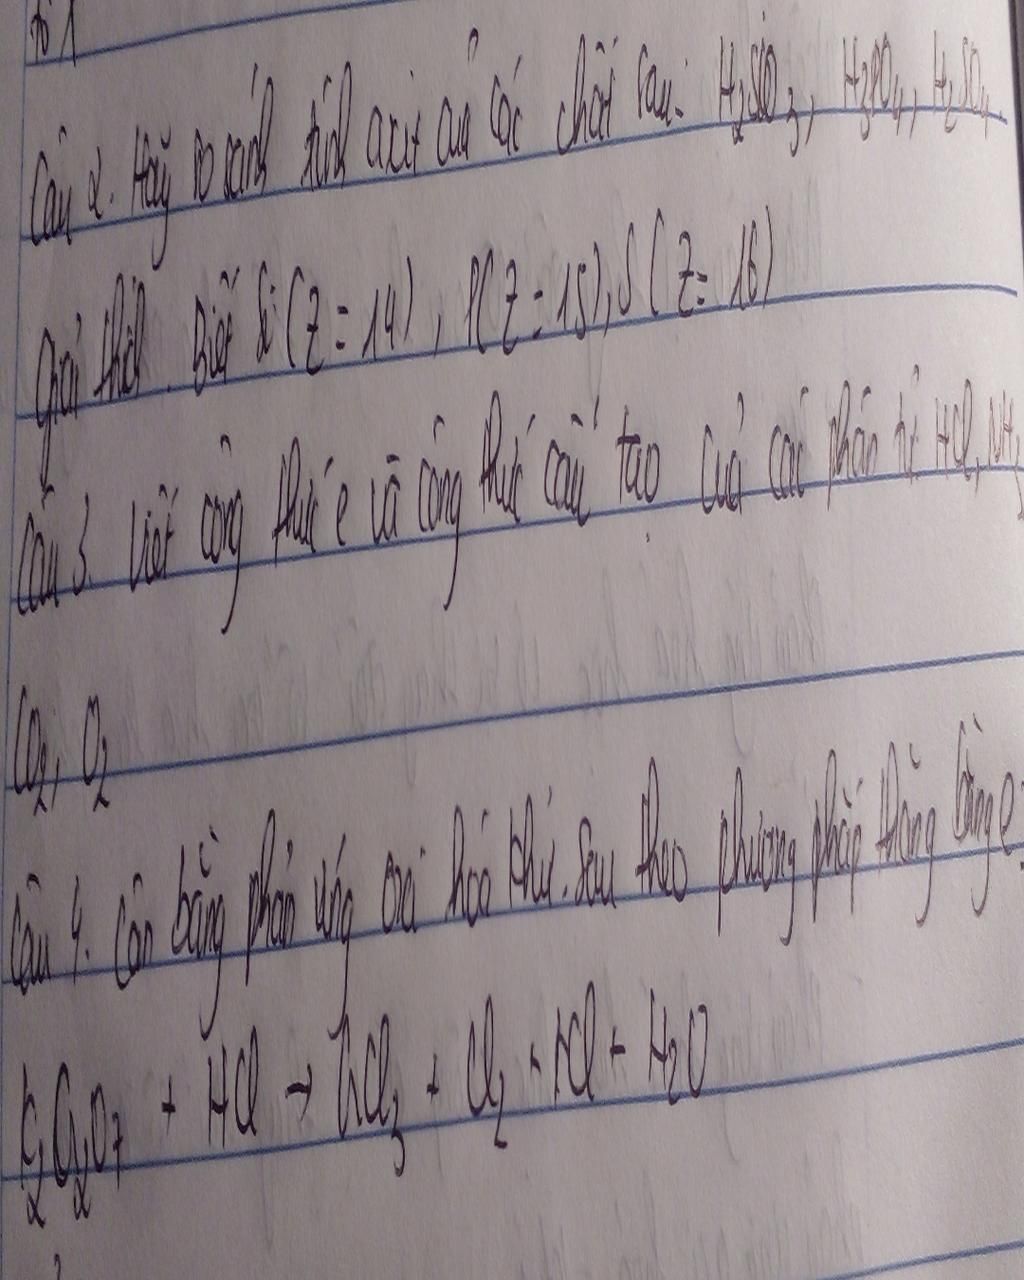 Câu 2. Hãy so sánh tính axit của các chất sau: H₂SiO₃, H₃PO₄, H₂SO₄.
giải thích. Biết Si (Z = 14), P(Z = 15), S (Z = 16)
Câu 3. Viết công thức e và công thức cấu tạo của các phân tử HCl, NH₃
CO₂, O₂
Câu 4. Cân bằng phản ứng oxi hoá khử sau theo phương pháp thăng bằng e:
K₂Cr₂O₇ + HCl → CrCl₃ + Cl₂ + KCl + H₂O